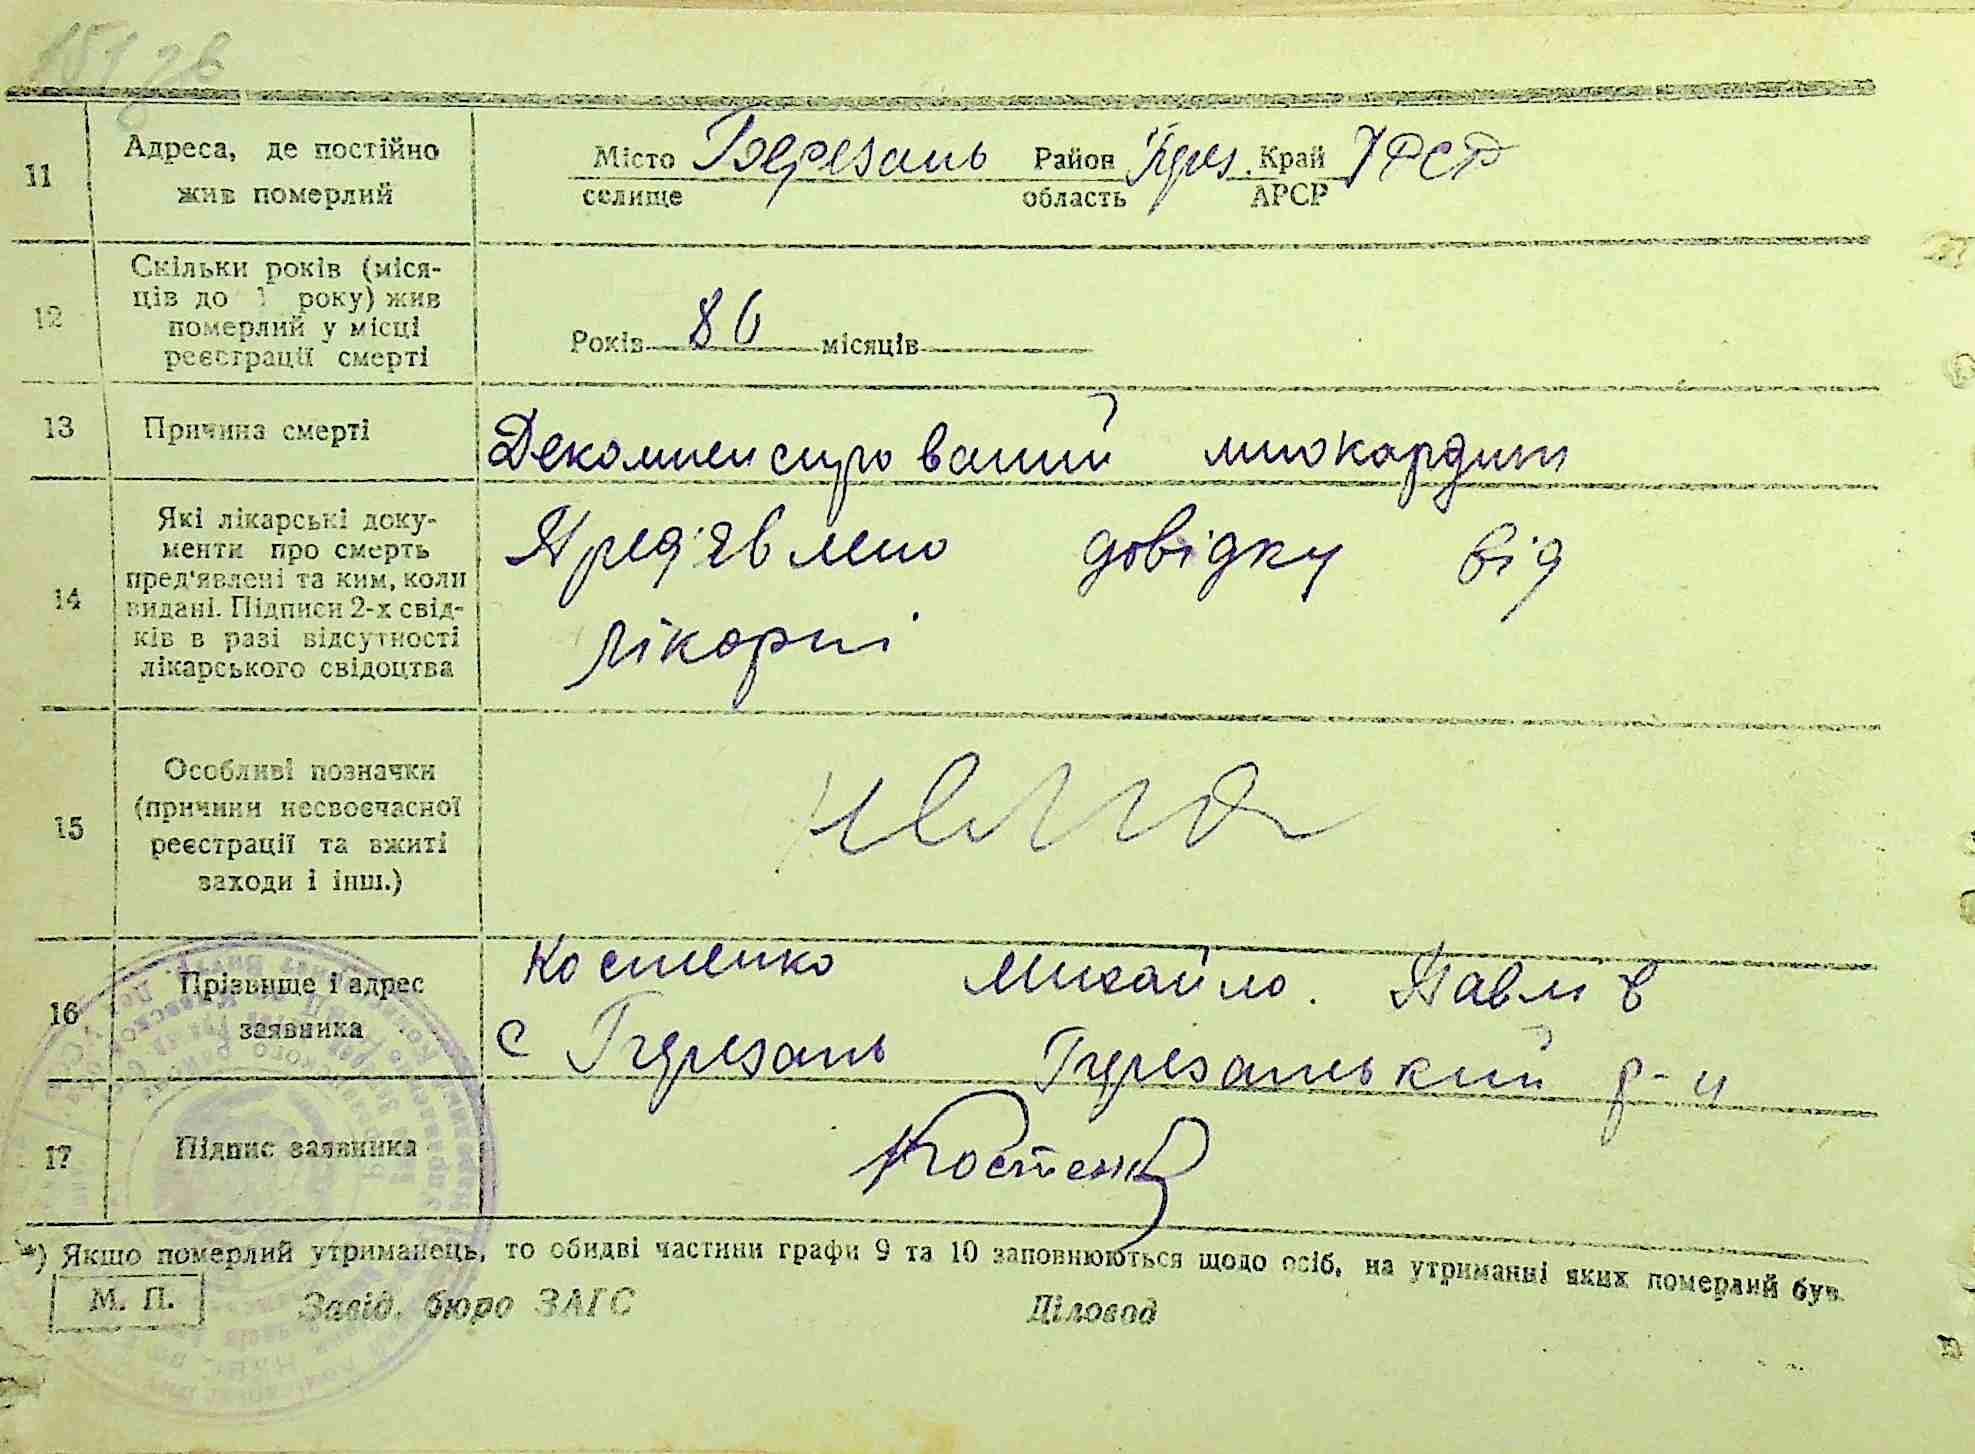 151 зв
11 Адреса, де постійно жив померлий
Місто Березань Район Берез. Край УРСР
селище область АРСР
12 Скільки років (міся-
ців до 1 року) жив
померлий у місці
реєстрації смерті
Років 80 місяців
13 Причина смерті Декомпенсировании миокардит
14 Які лікарські доку-
менти про смерть
пред'явлені та ким, коли
видані. Підписи 2-х свід-
ків в разі відсутності
лікарського свідоцтва
Пред'явлено довідку від
лікарні
15 Особливі позначки
(причини несвоєчасної
реєстрації та вжиті
заходи і інш.)
нема
16 Прізвище і адрес
заявника
Костенко Михайло. Павлів
с Березань Березанський р-н
17 Підпис заявника Костенко
*) Якщо померлий утриманець, то обидві частини графи 9 та 10 заповнюються щодо осіб, на утриманні яких померлий був.
М. П. Завід. бюро ЗАГС Діловод